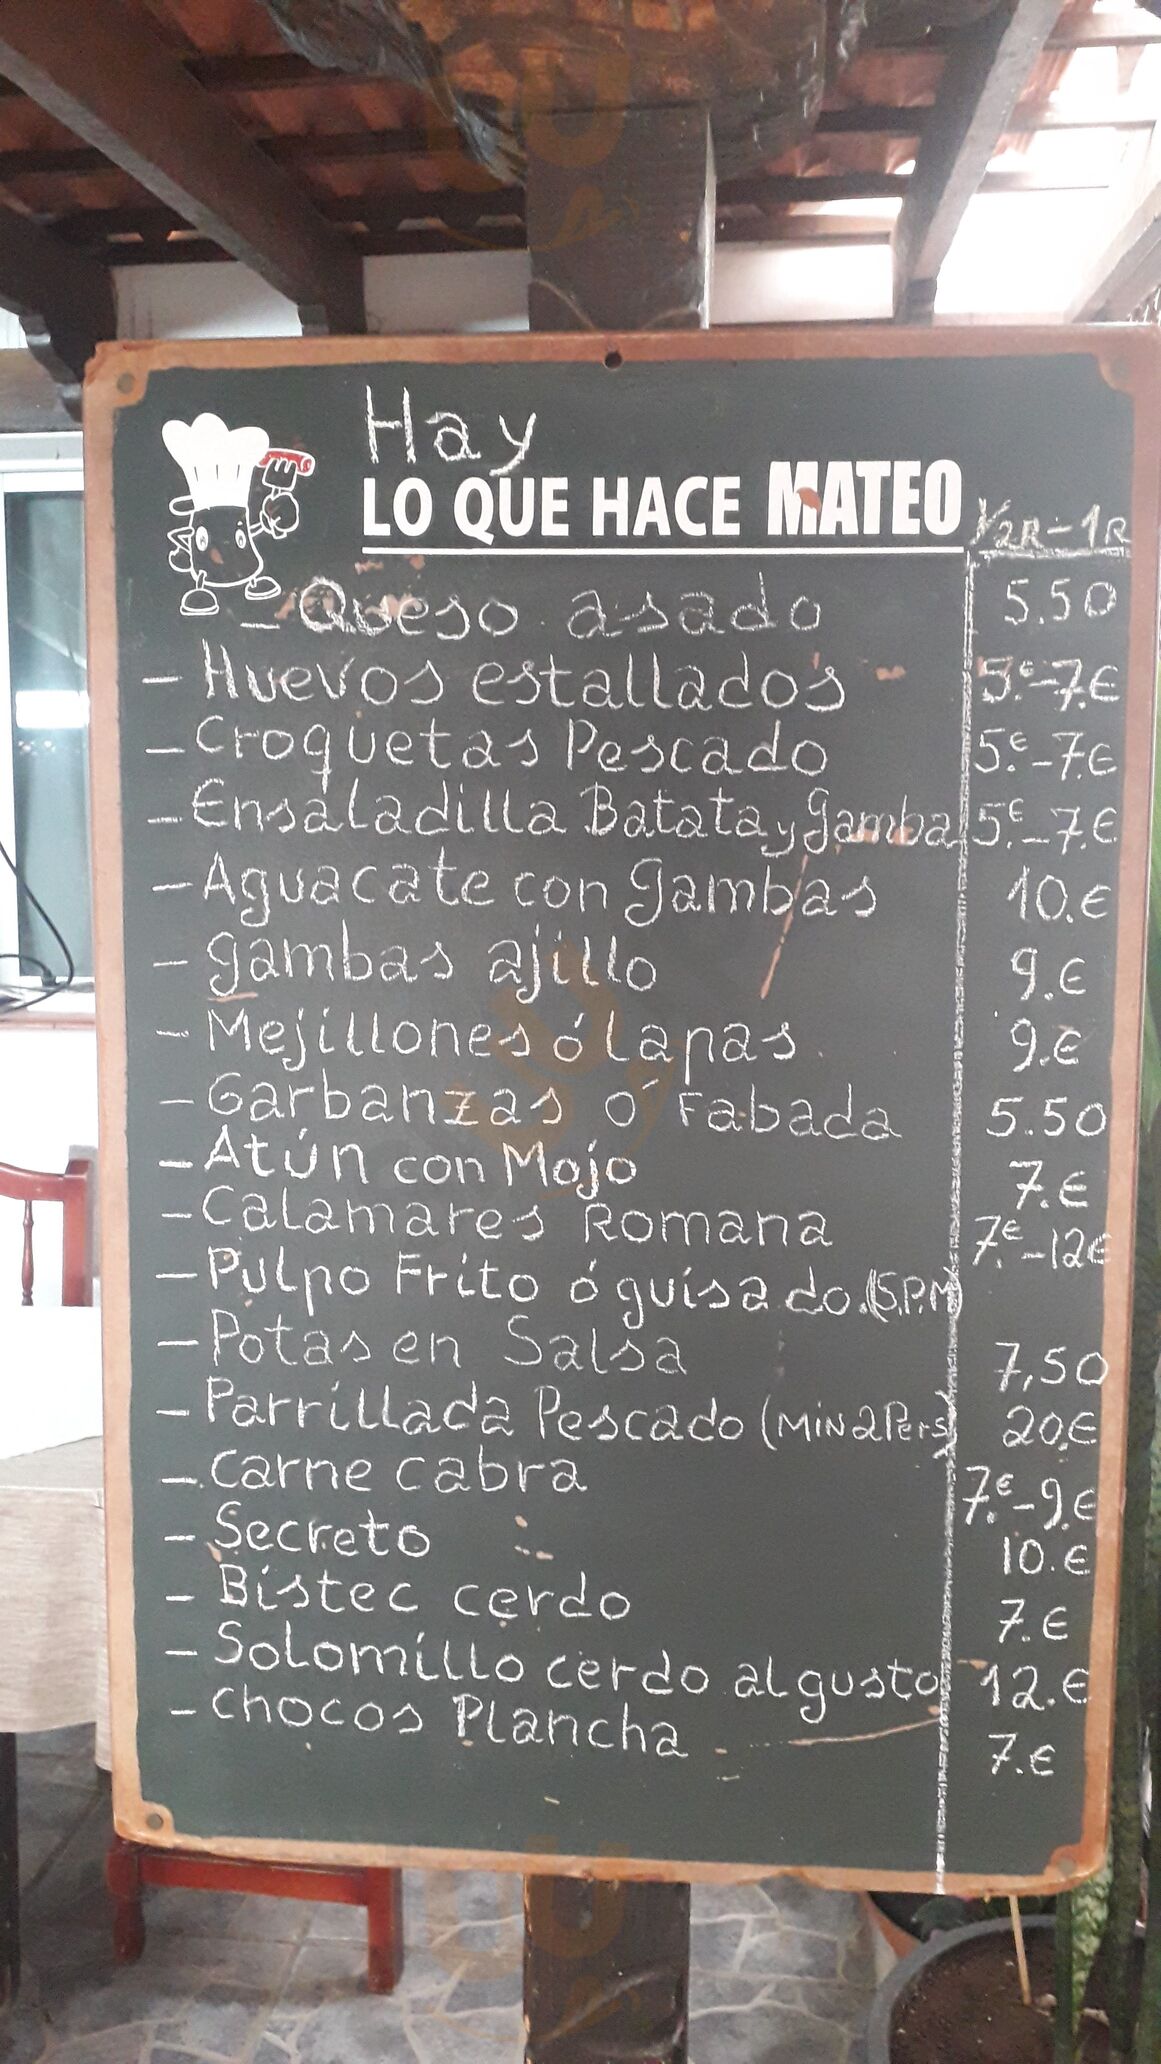 Hay
LO QUE HACE MATEO
1/2R-1R
- Queso asado 5.50
- Huevos estallados 5.€-7.€
- Croquetas Pescado 5.€-7.€
- Ensaladilla Batata y gamba 5.€-7.€
- Aguacate con gambas 10.€
- gambas ajillo 9.€
- Mejillones ó lapas 9.€
- Garbanzas ó Fabada 5.50
- Atún con Mojo 7.€
- Calamares Romana 7.€-12€
- Pulpo Frito ó guisado.(S.P.M)
- Potas en Salsa 7,50
- Parrillada Pescado (MiN 2 Pers) 20.€
- Carne cabra 7.€-9.€
- Secreto 10.€
- Bistec cerdo 7.€
- Solomillo cerdo al gusto 12.€
- Chocos Plancha 7.€